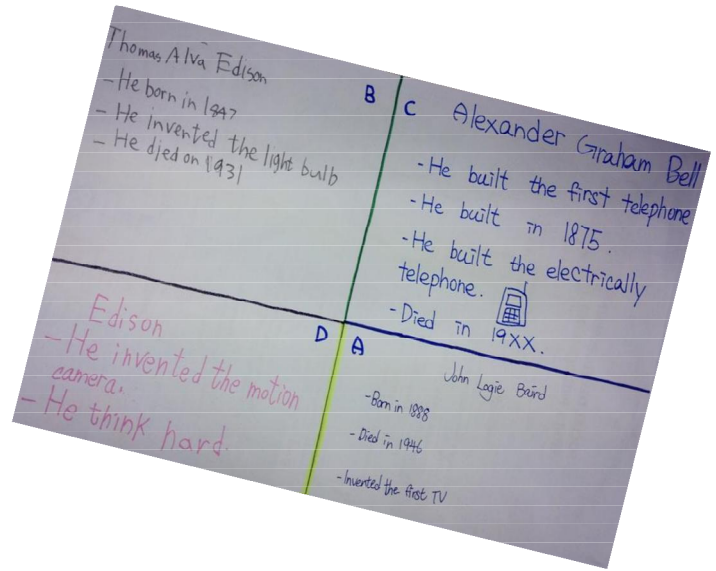 Thomas Alva Edison
- He born in 1847
- He invented the light bulb
- He died on 1931
B
C
Alexander Graham Bell
- He built the first telephone
- He built in 1875.
- He built the electrically
telephone.
- Died in 19XX.
D
Edison
- He invented the motion
camera.
- He think hard.
A
John Logie Baird
- Born in 1888
- Died in 1946
- Invented the first TV